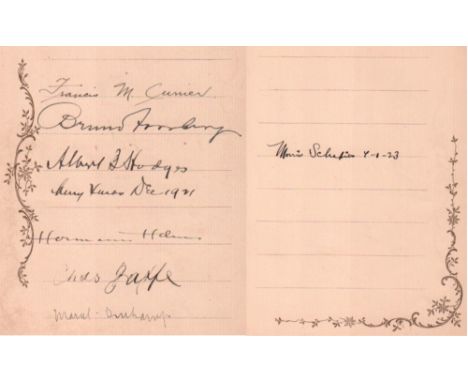 Francis M Currier
Bruno Forsberg
Albert B Hodges
Merry Xmas Dec 1921
Hermann Helms
Chas Jaffe
Marcel Duchamp
Morris Schapiro 4-1-23